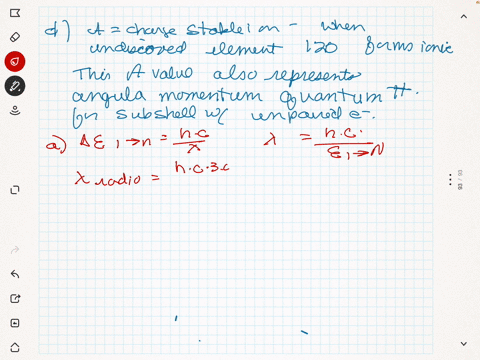 d) A = charge stable ion - when
undiscoved element 120 forms ionic
This A value also represents
angula momentum quantum #
for subshell w/ unpaired e-.
a) ΔE 1→n = h·c / λ    λ = h·c· / E 1→N
λ radio = h·c·3·c